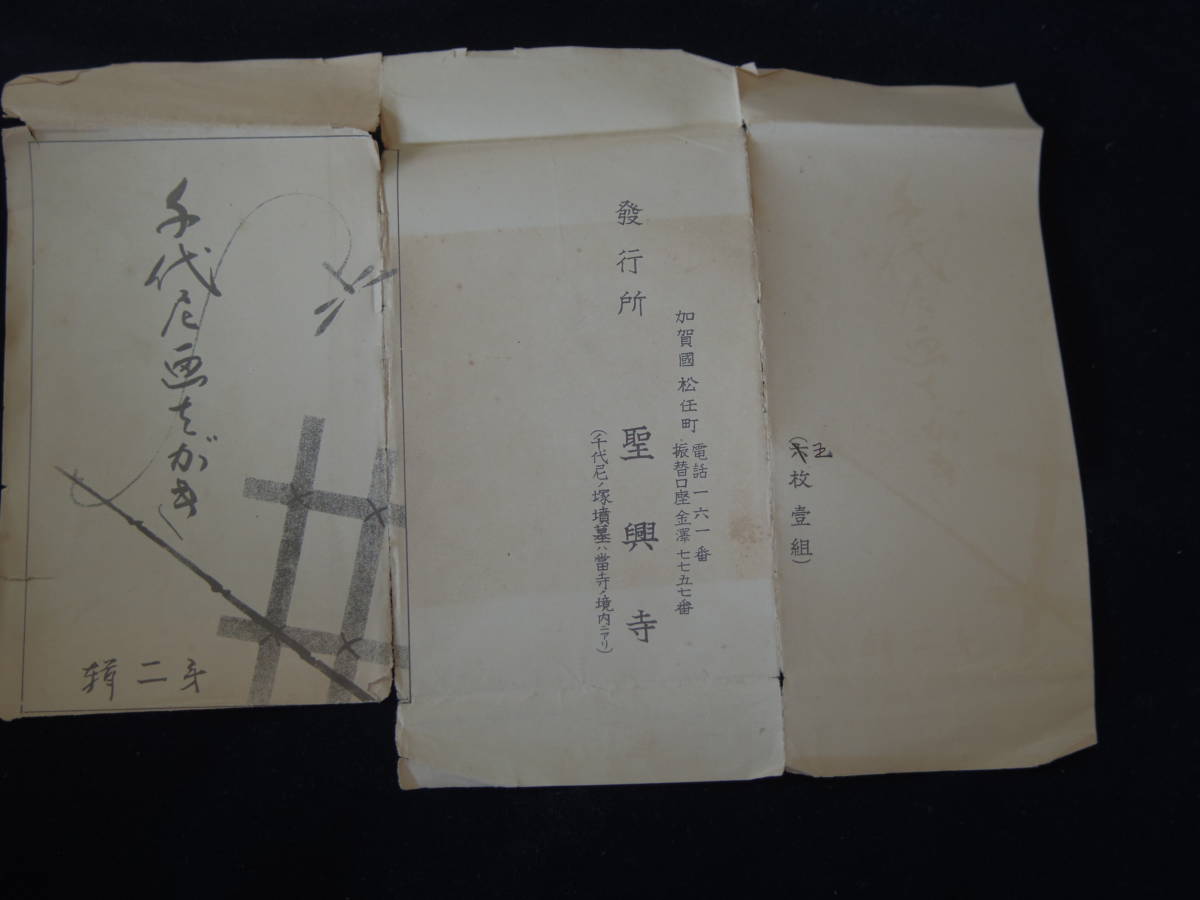 千代尼画はがき
第二輯
加賀國松任町
電話一六一番
振替口座金澤七七五七番
發行所 聖興寺
(千代尼ノ塚墳墓ハ當寺ノ境内ニアリ)
(五枚壹組)